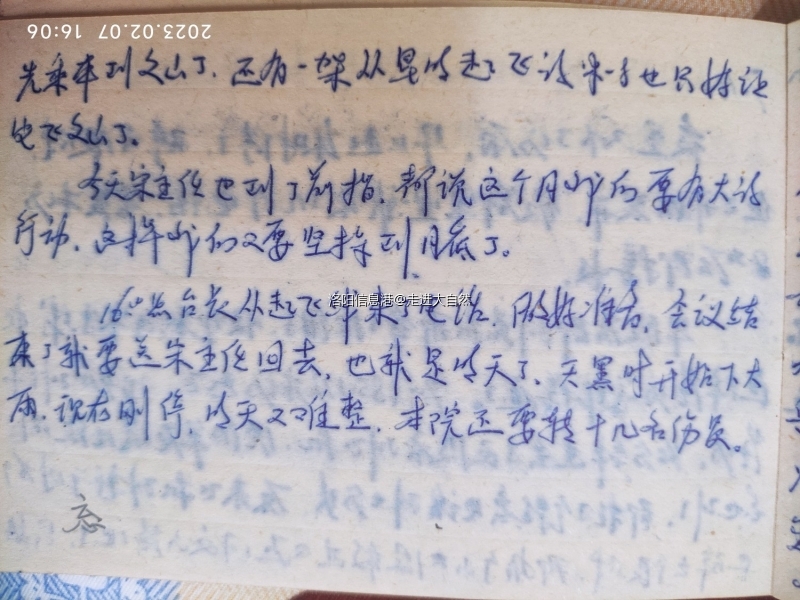 2023.02.07 16:06
先乘车到文山了，还有一架从昆明起飞的米-8也只好让
它飞文山了。
今天宋主任也到了前指，都说这个月咱们要有大的
行动，这样咱们又要坚持到月底了。
16点台长从起飞线来了电话，做好准备，会议结
束了就要送宋主任回去，也就是明天了，天黑时开始下大
雨，现在刚停，明天又难整，本院还要转十几名伤员。
洛阳信息港@走进大自然